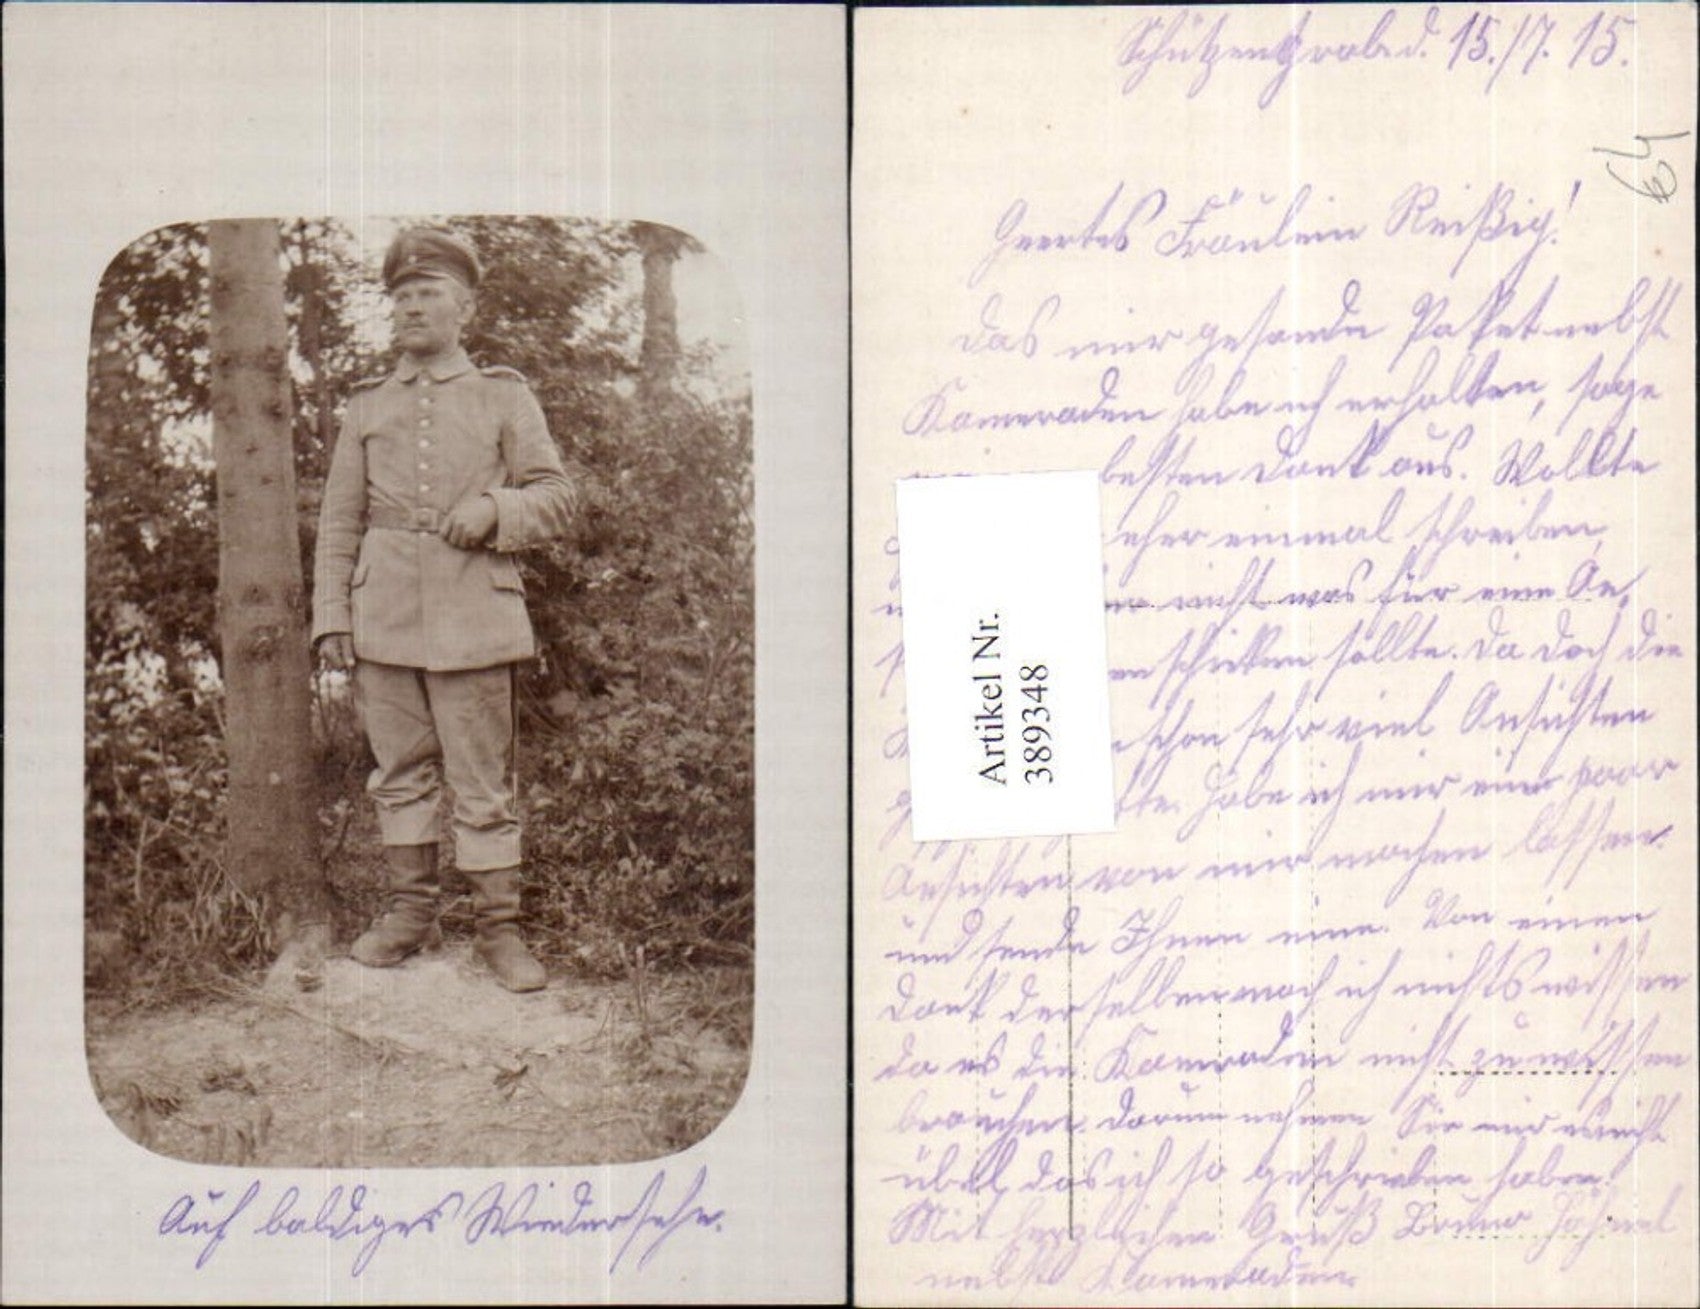 Auf baldiges Wiedersehn.
Schützengrab.d. 15./7. 15.
64
Geertes Fräulein Reißig!
Das mir gesande Paket nebst
Kameraden habe ich erhalten, sage
besten Dank aus. Wollte
eher einmal schreiben,
nicht was für eine An,
schicken sollte. Da doch die
schon sehr viel Ansichten
habe ich mir ein paar
Ansichten von mir machen lassen.
und sende Ihnen eine. Von einen
Dank derselben mach ich nichts wissen
da es die Kameraden nicht zu wissen
brauchen. Darum nehmen Sie mir nicht
übel, das ich so geschrieben habe.
Mit herzlichen Gruß Bruno
nebst Kameraden
Artikel Nr.
389348